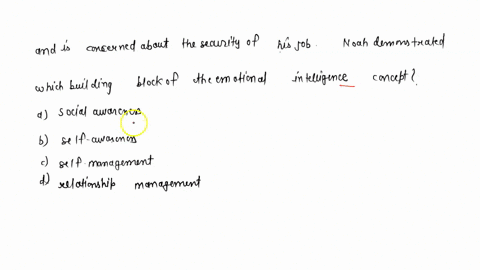 and is concerned about the security of his job. Noah demonstrated
which building block of the emotional intelligence concept?
a) Social awareness
b) self-awareness
c) self-management
d) relationship management